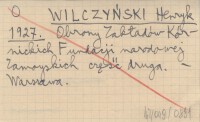 O WILCZYŃSKI Henryk
1927. Obrony Zakładów Kór-
nickich Fundacji narodowej
Zamoyskich część druga. –
Warszawa.